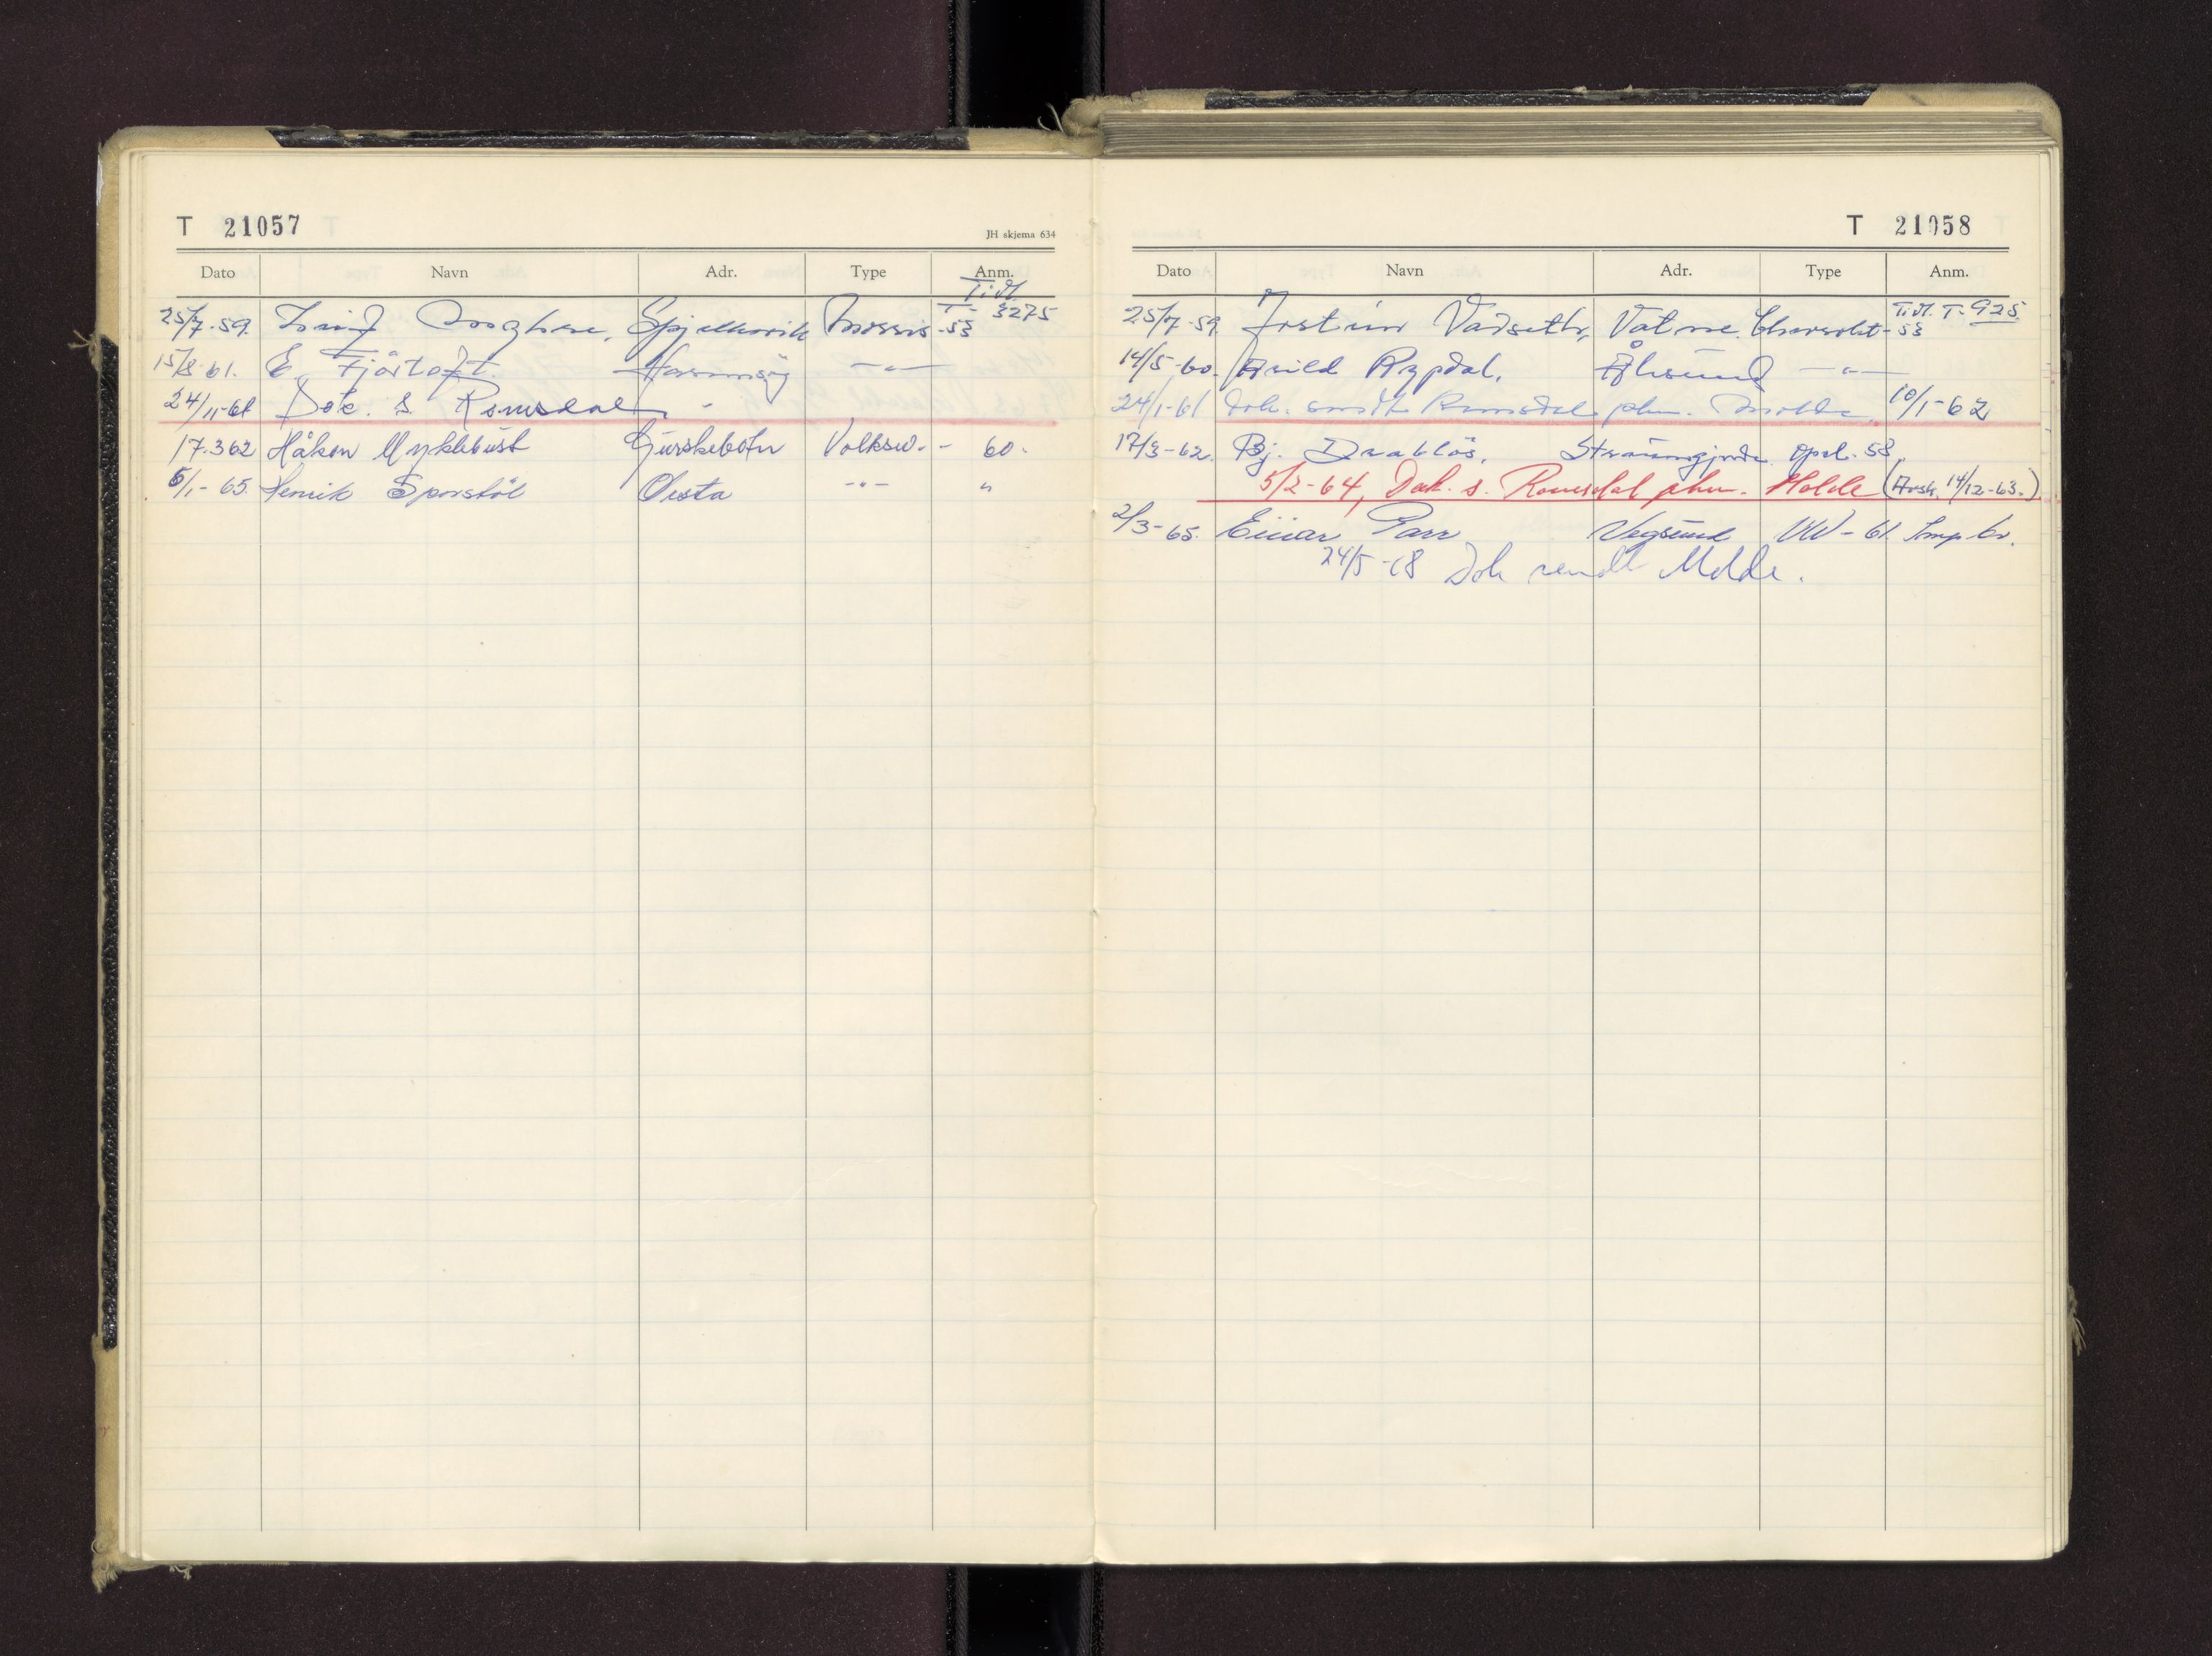 T 21057
JH skjema 634
Dato Navn Adr. Type Anm.
Tidl. T- 3275
25/7-59. Spjelkavik Morris -53
15/8-61. E. Fjörtoft. -"-
24/11-61 Dok. s. Romsdal
17.3 62 Håkon Myklebust Gurskebotn Volksw. - 60.
6/1-65. Henrik Sporstöl Ørsta -"- "
T 21058
Dato Navn Adr. Type Anm.
Tidl. T- 925
25/7-59. Jostein Vadseth, Vatne. Chevrolet -53
14/5-60. Arild Rypdal, Ålesund -"-
24/1-61 Dok. sendt Romsdal phm. Molde. 10/1-62
17/3-62. Bj. Drabløs, Straumgjerde Opel -58.
5/2-64, Dok. s. Romsdal phm. Molde (Avsk. 14/12-63.)
2/3-65. Einar Farr Vegsund VW - 61
24/5-68 Dok sendt Molde.